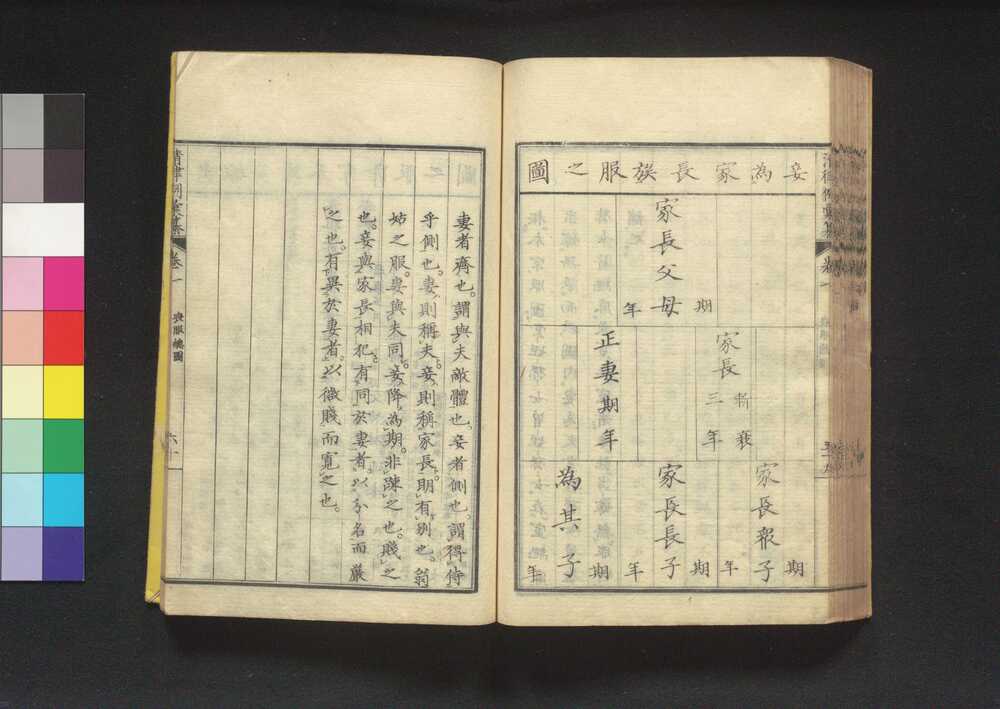 妾為家長族服之圖
家長父母
期年
家長
斬衰
三年
正妻期年
家長衆子
期年
家長長子
期年
為其子
期年
妻者齊也。謂與夫敵體也。妾者側也。謂得侍
乎側也。妻則稱夫。妾則稱家長。明有別也。翁
姑之服。妻與夫同。妾降為期。非踈之也。賤之
也。妾與家長相犯。有同於妻者。以分名而嚴
之也。有異於妻者。以微賤而寬之也。
卷一
喪服總圖
六十